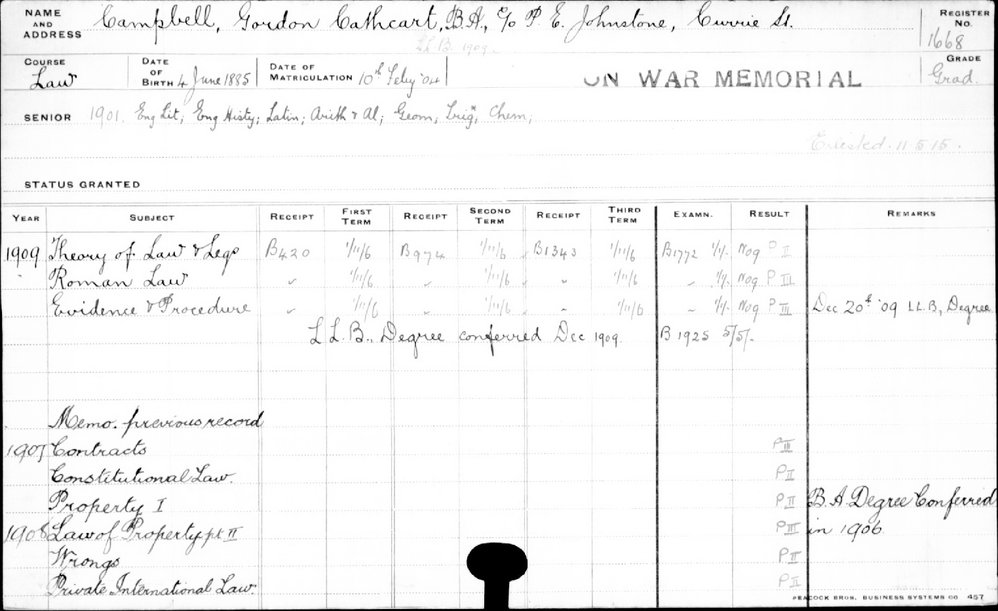 NAME AND ADDRESS Campbell, Gordon Cathcart, B.A., c/o P. E. Johnstone, Currie St.
REGISTER No. 1668
LL.B. 1909.
COURSE Law
DATE OF BIRTH 4 June 1885
DATE OF MATRICULATION 10th Feby '04
ON WAR MEMORIAL
GRADE Grad.
SENIOR 1901. Eng Lit; Eng Histy; Latin; Arith & Al; Geom; Trig; Chem;
Enlisted. 11.5.15.
STATUS GRANTED
YEAR SUBJECT RECEIPT FIRST TERM RECEIPT SECOND TERM RECEIPT THIRD TERM EXAMN. RESULT REMARKS
1909 Theory of Law & Legs B420 1/11/6 B974 1/11/6 B1343 1/11/6 B1772 1/1/. Nog P II
Roman Law " 1/11/6 " 1/11/6 " 1/11/6 " 1/1/. Nog P III
Evidence & Procedure " 1/11/6 " 1/11/6 " 1/11/6 " 1/1/. Nog P III Dec 20th '09 LL.B, Degree
LL.B., Degree conferred Dec 1909. B 1925 5/5/.
Memo. previous record
1907 Contracts P III
Constitutional Law. P II
Property I P II B.A. Degree Conferred
1908 Law of Property pt II P III in 1906
Wrongs P II
Private International Law. P II
PEACOCK BROS. BUSINESS SYSTEMS CO 457